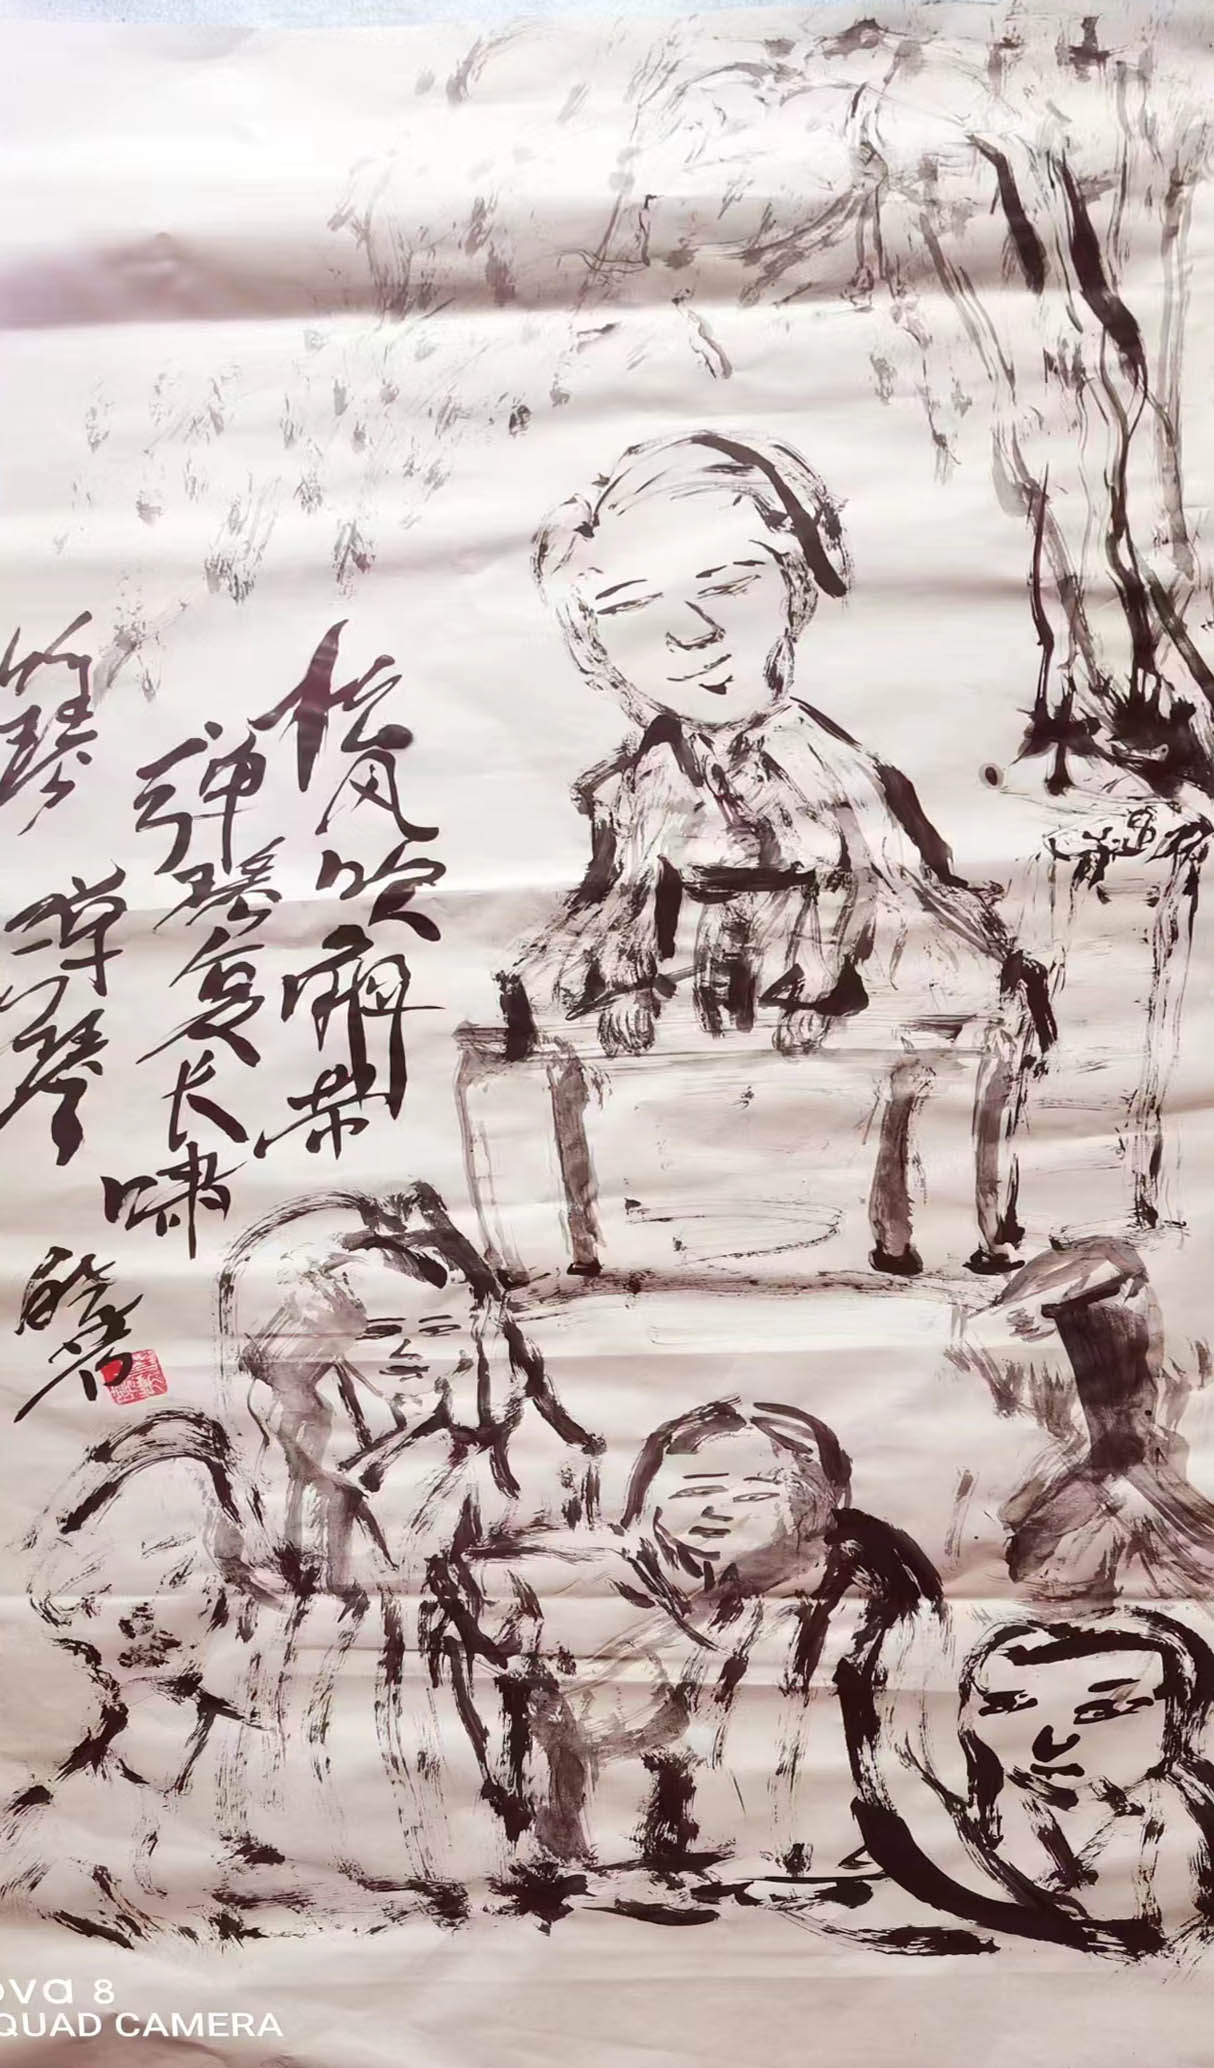 松风吹解带
弹琴复长啸
弹琴
ova 8
QUAD CAMERA